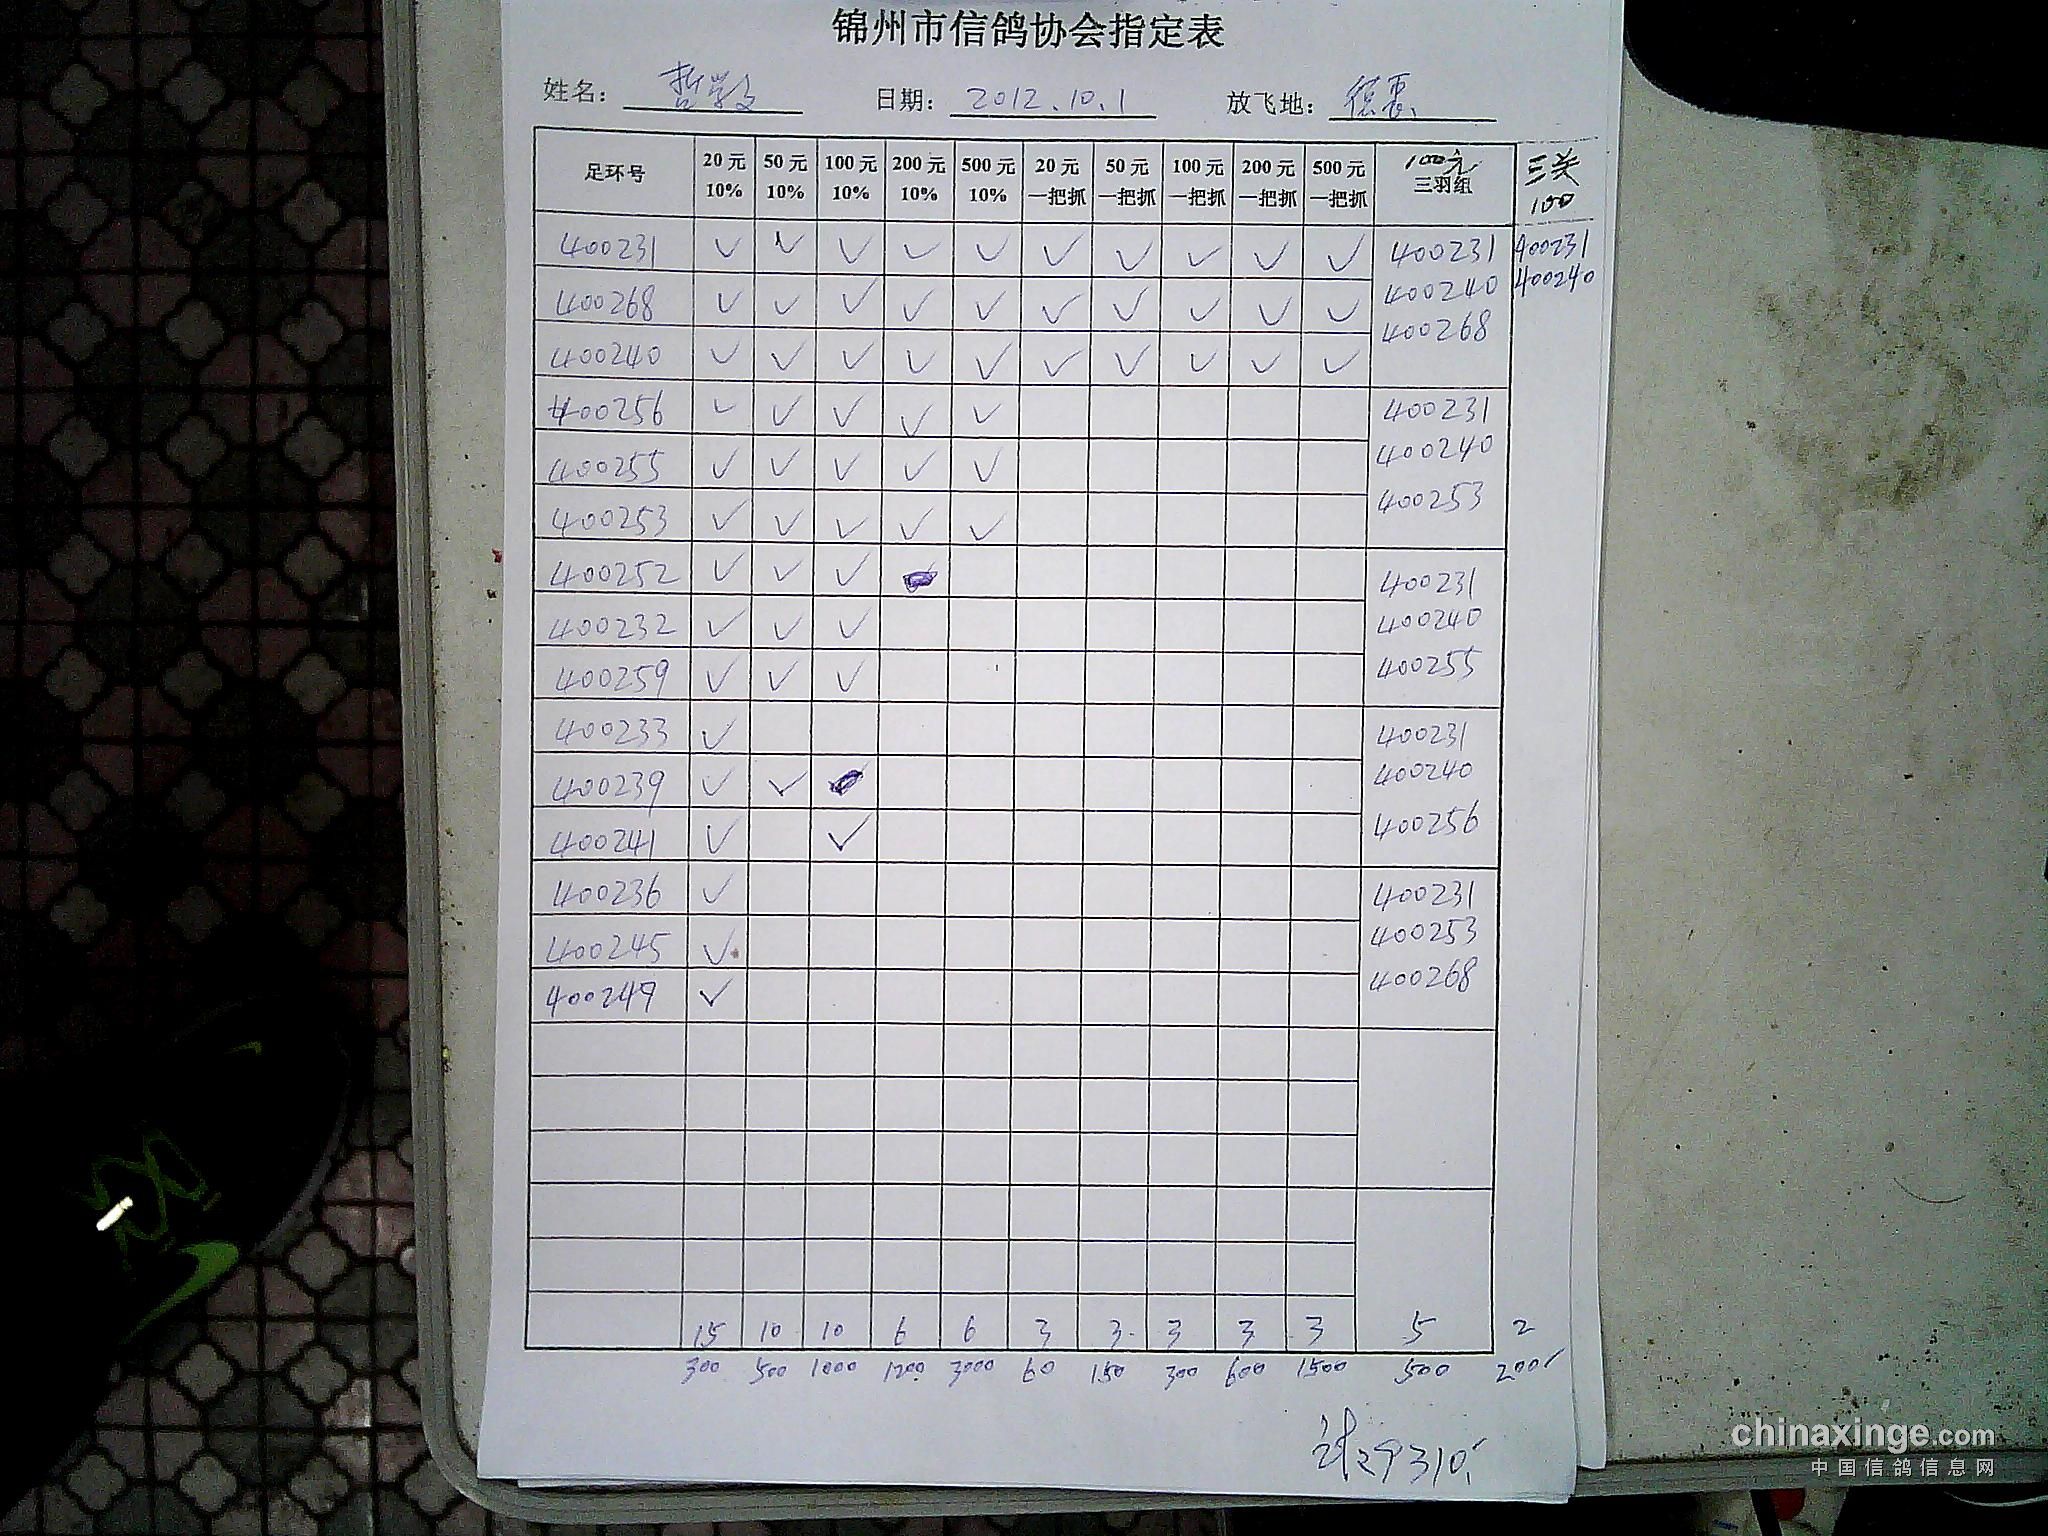 锦州市信鸽协会指定表
姓名： 哲学文 日期： 2012.10.1 放飞地： 德惠
足环号 20元 10% 50元 10% 100元 10% 200元 10% 500元 10% 20元 一把抓 50元 一把抓 100元 一把抓 200元 一把抓 500元 一把抓 100元 三羽组 三关 100
400231 ✓ ✓ ✓ ✓ ✓ ✓ ✓ ✓ ✓ ✓ 400231 400231
400268 ✓ ✓ ✓ ✓ ✓ ✓ ✓ ✓ ✓ ✓ 400240 400240
400240 ✓ ✓ ✓ ✓ ✓ ✓ ✓ ✓ ✓ ✓ 400268
400256 ✓ ✓ ✓ ✓ ✓ 400231
400255 ✓ ✓ ✓ ✓ ✓ 400240
400253 ✓ ✓ ✓ ✓ ✓ 400253
400252 ✓ ✓ ✓ 400231
400232 ✓ ✓ ✓ 400240
400259 ✓ ✓ ✓ 400255
400233 ✓ 400231
400239 ✓ ✓ 400240
400241 ✓ ✓ 400256
400236 ✓ 400231
400245 ✓ 400253
400249 ✓ 400268
15 10 10 6 6 3 3 3 3 3 5 2
300 500 1000 1200 3000 60 150 300 600 1500 500 200
计29310
chinaxinge.com
中国信鸽信息网